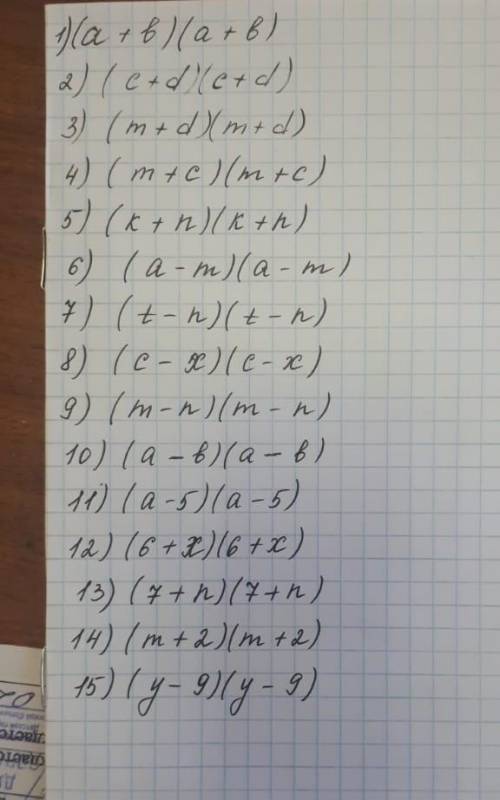 1) (a + b)(a + b)
2) (c + d)(c + d)
3) (m + d)(m + d)
4) (m + c)(m + c)
5) (k + n)(k + n)
6) (a - m)(a - m)
7) (t - n)(t - n)
8) (c - x)(c - x)
9) (m - n)(m - n)
10) (a - b)(a - b)
11) (a - 5)(a - 5)
12) (6 + x)(6 + x)
13) (7 + n)(7 + n)
14) (m + 2)(m + 2)
15) (y - 9)(y - 9)